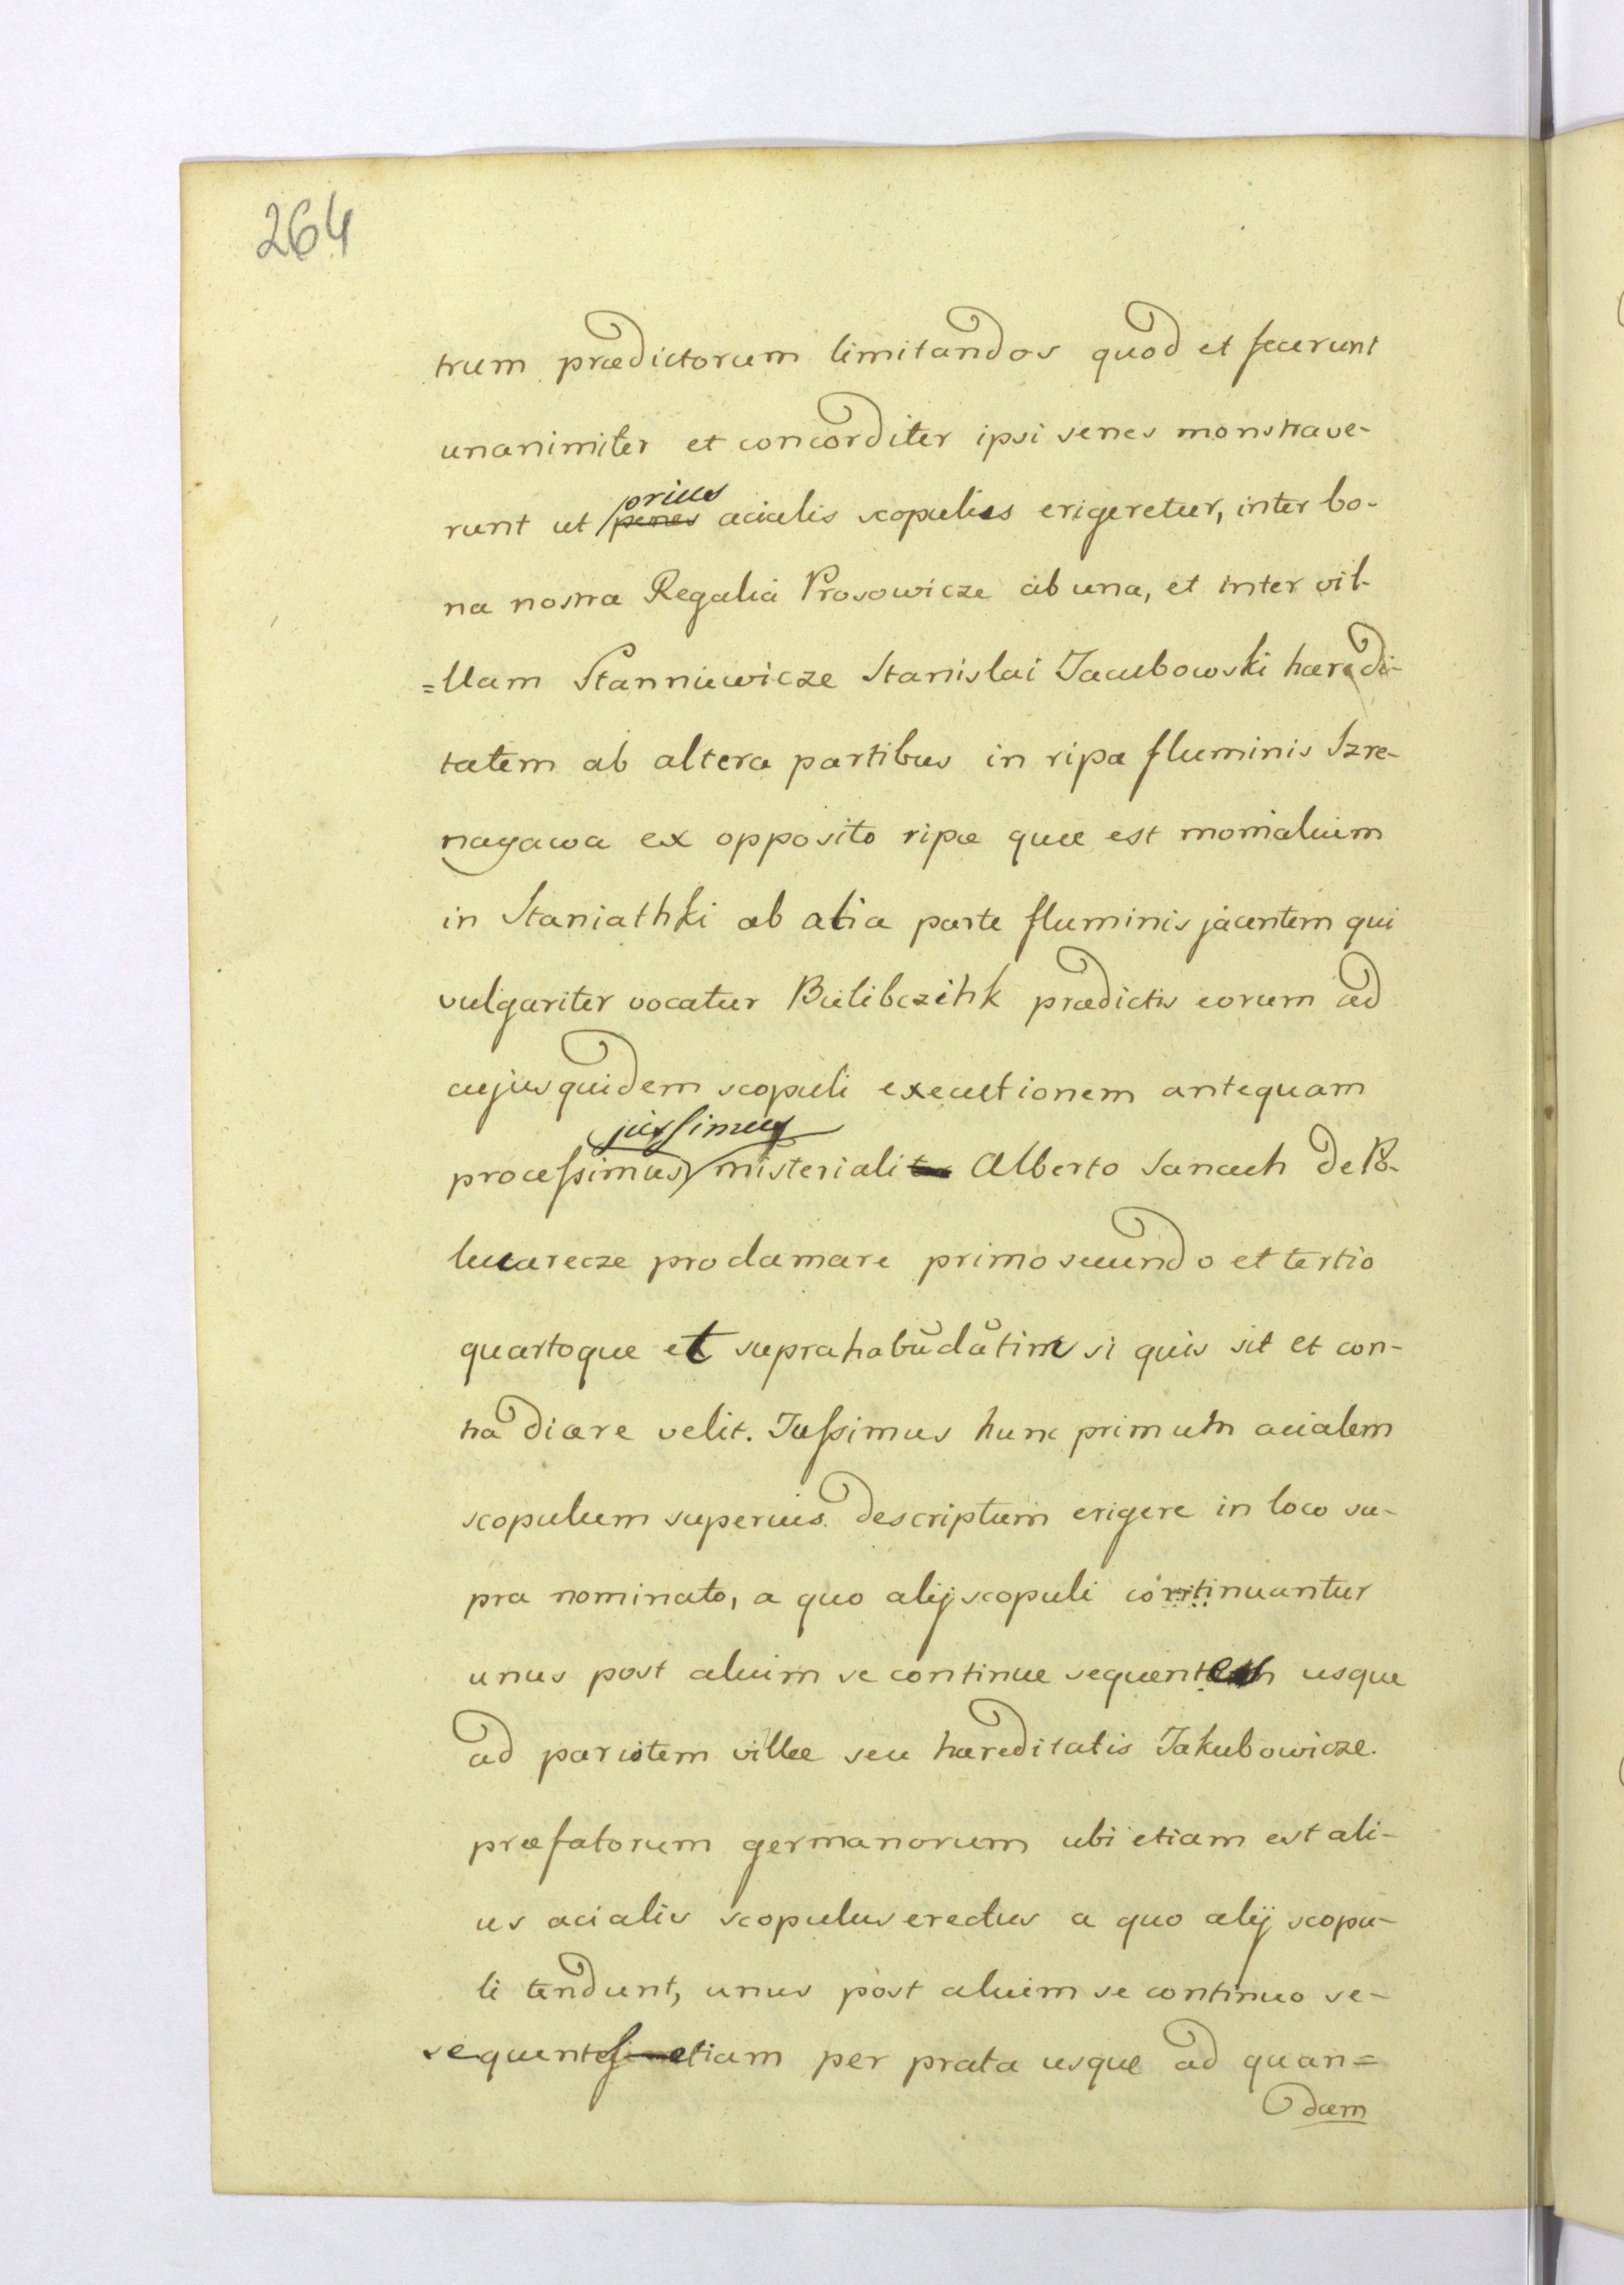 264
trum prædictorum limitandos quod et fecerunt
unanimiter et concorditer ipsi senes monstrave-
prius
runt ut penes acialis scopulus erigeretur, inter bo-
na nostra Regalia Prosowicze ab una, et inter vil-
=llam Stanniewicze Stanislai Jacubowski hæredi-
tatem ab altera partibus in ripa fluminis Szre-
nayawa ex opposito ripæ quæ est monialium
in Staniathki ab alia parte fluminis jacentem qui
vulgariter vocatur Bielibczihk prædictis eorum ad
cujus quidem scopuli executionem antequam
jussimus
processimus misteriali Alberto Sanach de Po-
lucarecze proclamare primo secundo et tertio
quartoque et suprahabūdātim si quis sit et con-
tradicere velit. Jussimus hunc primum acialem
scopulum superius descriptum erigere in loco su-
pra nominato, a quo alij scopuli continuantur
unus post alium se continue sequentes usque
ad parietem villæ seu hæreditatis Jakubowicze.
præfatorum germanorum ubi etiam est ali-
us acialis scopulus erectus a quo alij scopu-
li tendunt, unus post alium se continuo se-
sequentes etiam per prata usque ad quan=
dam